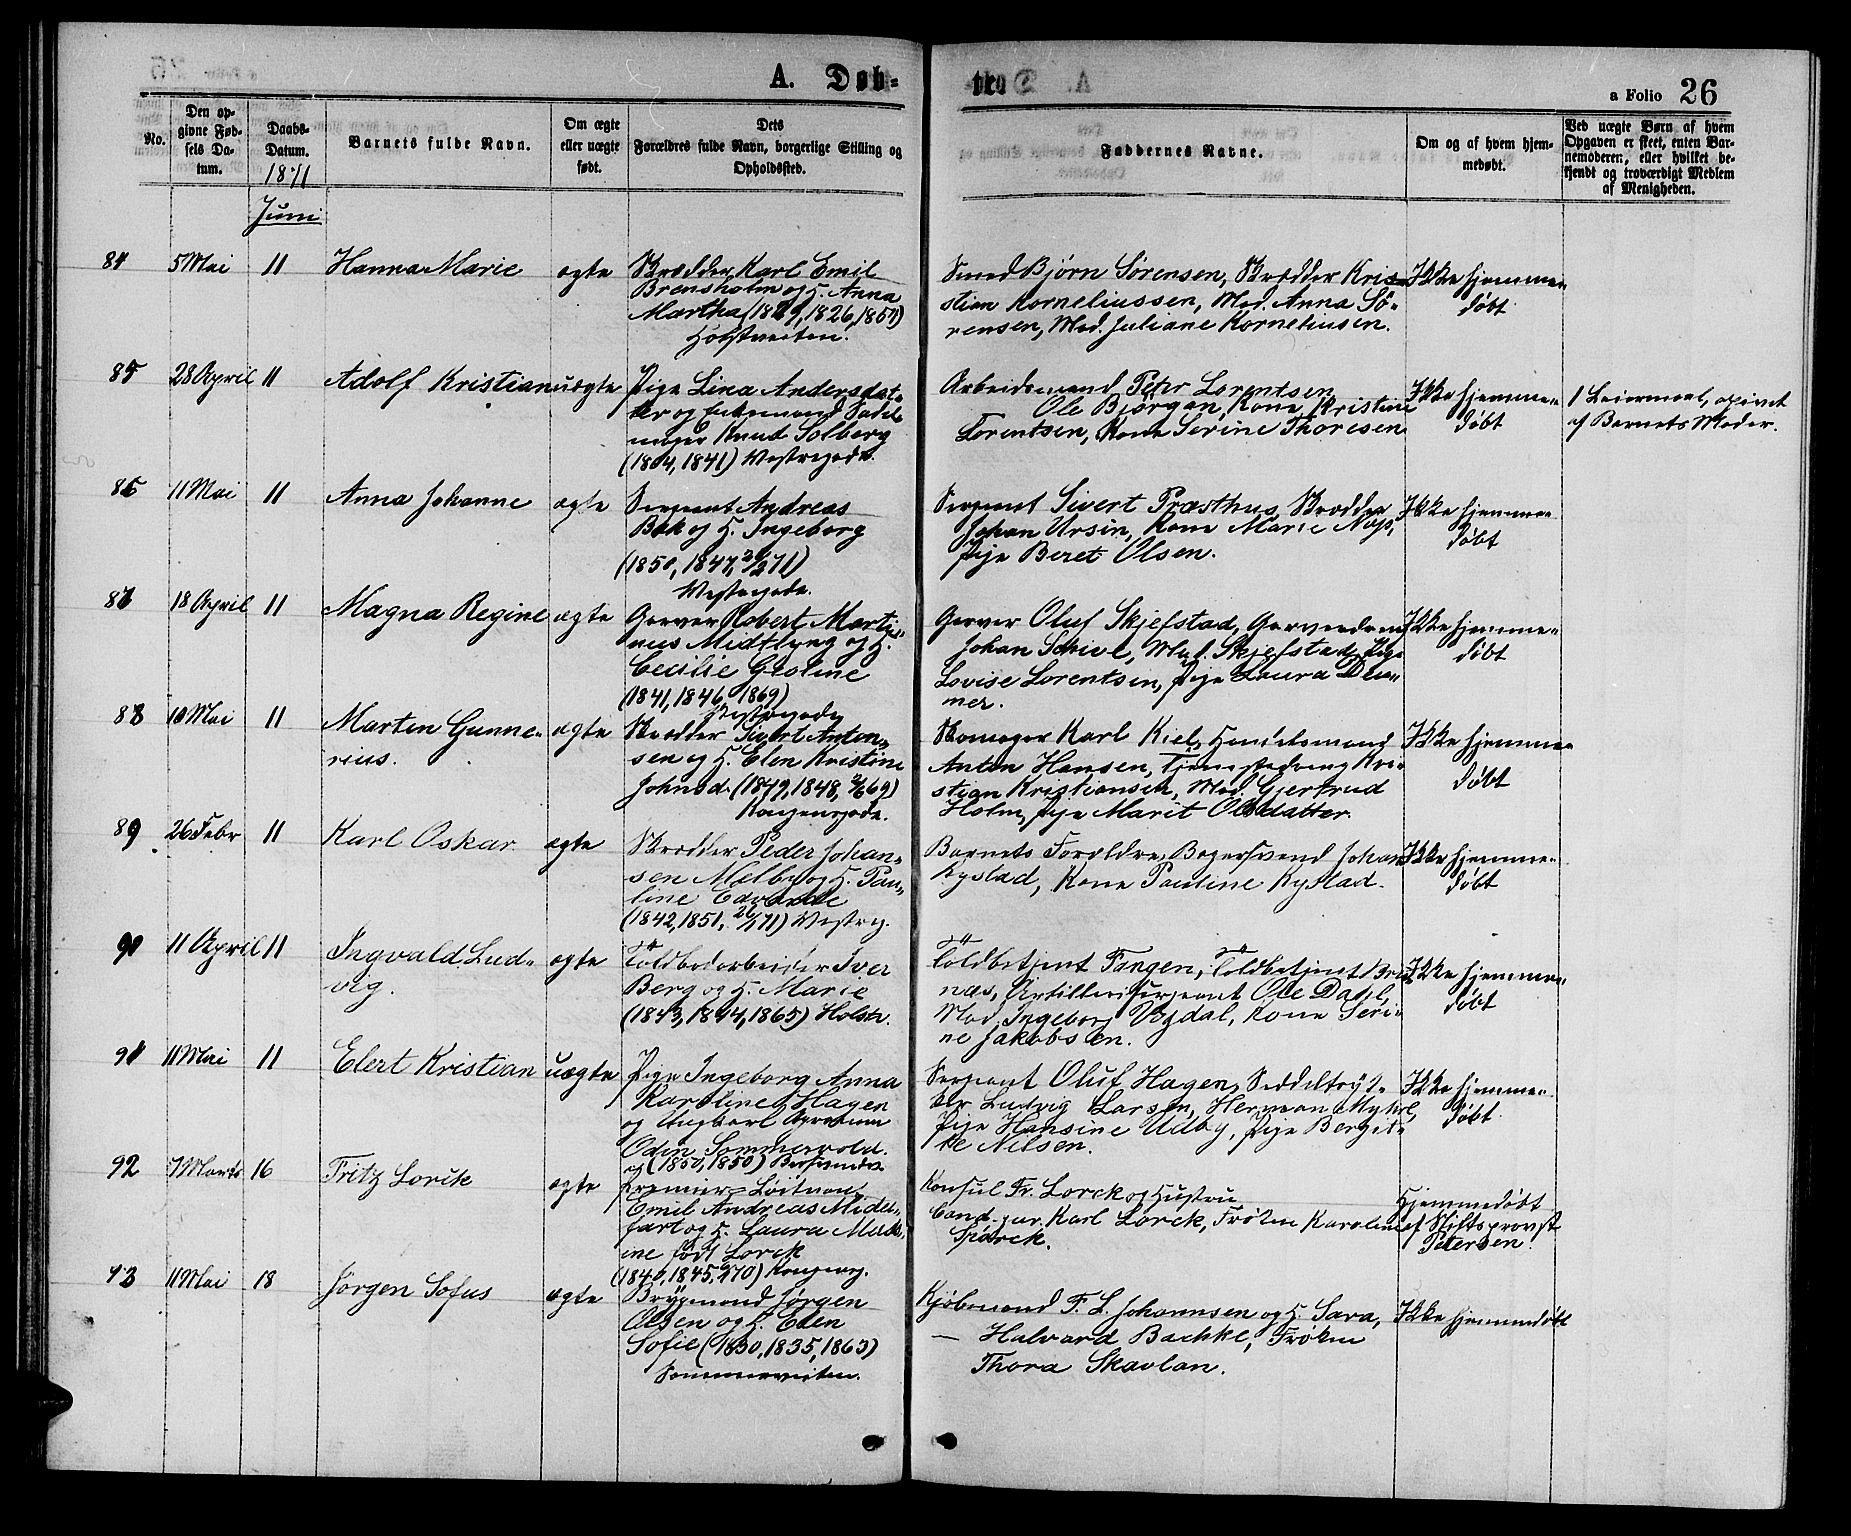 A. Døb-
a Folio 26
No.
Den op-
givne Fød-
sels Da-
tum.
Daabs-
Datum.
1871
Barnets fulde Navn.
Om ægte
eller uægte
født.
Dets
Forældres fulde Navn, borgerlige Stilling og
Opholdssted.
Faddernes Navne.
Om og af hvem hjem-
medøbt.
Ved uægte Børn af hvem
Opgaven er skeet, enten Bar-
nemoderen, eller hvilket be-
kjendt og troværdigt Medlem
af Menigheden.
Juni
84 5 Mai 11 Hanna Marie ægte
Skrædder Karl Emil
Brensholm og H. Anna
Martha
Smed Bjørn Sørensen, Skrædder Kri-
stian Korneliussen, Mad. Anna Sø-
rensen, Mad. Juliane Korneliusen.
Ikke hjemme-
døbt
85 28 April 11 Adolf Kristian uægte
Pige Lina Andersdat-
ter og Enkemand Sadel-
mager Knud Solberg
(1841) Vestregade.
Arbeidsmand Peter Lorentsen
Ole Bjørgan, Kone Kristine
Lorentsen, Kone Serine Thoresen
Ikke hjemme-
døbt
1 Leiermaal, opgivet
af Barnets Moder.
86 11 Mai 11 Anna Johanne ægte
Sergeant Andreas
Bak og H. Ingeborg
(1850, 1847, 71)
Vestregade.
Sergeant Sivert Præsthus, Skrædder
Johan Ursin, Kone Marie
Pige Beret Olsen.
Ikke hjemme-
døbt
87 18 April 11 Magna Regine ægte
Garver Robert Marti-
nus Midtlyng og H.
Cecilie Gesline
(1841, 1846, 1869)
Vestregade
Garver Oluf Skjefstad, Garversvend
Johan Schive, Mad. Skjefstad, Pige
Lovise Lorentsen, Pige Laura
mer.
Ikke hjemme-
døbt
88 10 Mai 11 Marten Gunne-
rius. ægte
Skrædder Sivert Anton-
sen og H. Elen Kristine
Johnsd. (1849, 1848, 69)
Kongensgade.
Skomager Karl Kiel, Handelsmand
Anton Hansen, Tjenestedreng Kri-
stian Kristiansen, Mad. Gjertrud
Holm, Pige Marit Olsdatter.
Ikke hjemme-
døbt
89 26 Febr 11 Karl Oskar ægte
Skrædder Peder Johan-
sen Melby og H. Pau-
line
(1842, 1851, 71) Vestreg.
Barnets Forældre, Bagersvend Johan
Kystad, Kone Pauline Kystad.
Ikke hjemme-
døbt
90 11 April 11 Ingvald Lud-
vig. ægte
Toldbodarbeider Iver
Berg og H. Marie
(1843, 1844, 1865) Holstv.
Toldbetjent Fangen, Toldbetjent
næs, Artillerisergeant Ole Dahl,
Mad. Ingeborg Vogdal, Kone Seri-
ne Jakobsen.
Ikke hjemme-
døbt
91 11 Mai 11 Elert Kristian uægte
Pige Ingeborg Anna
Karoline Hagen
og Ungkarl Agronom
Odin Sommervold.
(1850, 1850)
Sergeant Oluf Hagen, Seddeltryk-
ker Ludvig Larsen, Herman Myhre,
Pige Hansine Udby, Pige Bergit-
te Nilsen.
Ikke hjemme-
døbt
92 7 Marts 16 Fritz Lorck ægte
Premier-Løitnant
Emil Andreas Midel-
fart og H. Laura
ine født Lorck
(1840, 1845, 70) Kongensg.
Konsul Fr. Lorck og Hustru
Cand. jur. Karl Lorck, Frøken Karoline
Spørck.
Hjemmedøbt
af Stiftsprovst
Petersen.
93 11 Mai 18 Jørgen Sofus ægte
Brygmand Jørgen
Olsen og H. Elen
Sofie (1830, 1835, 1863)
Sommerveiten.
Kjøbmand F. L. Johannsen og H. Sara,
— Halvard Bachke, Frøken
Thora Skavlan.
Ikke hjemmedøbt